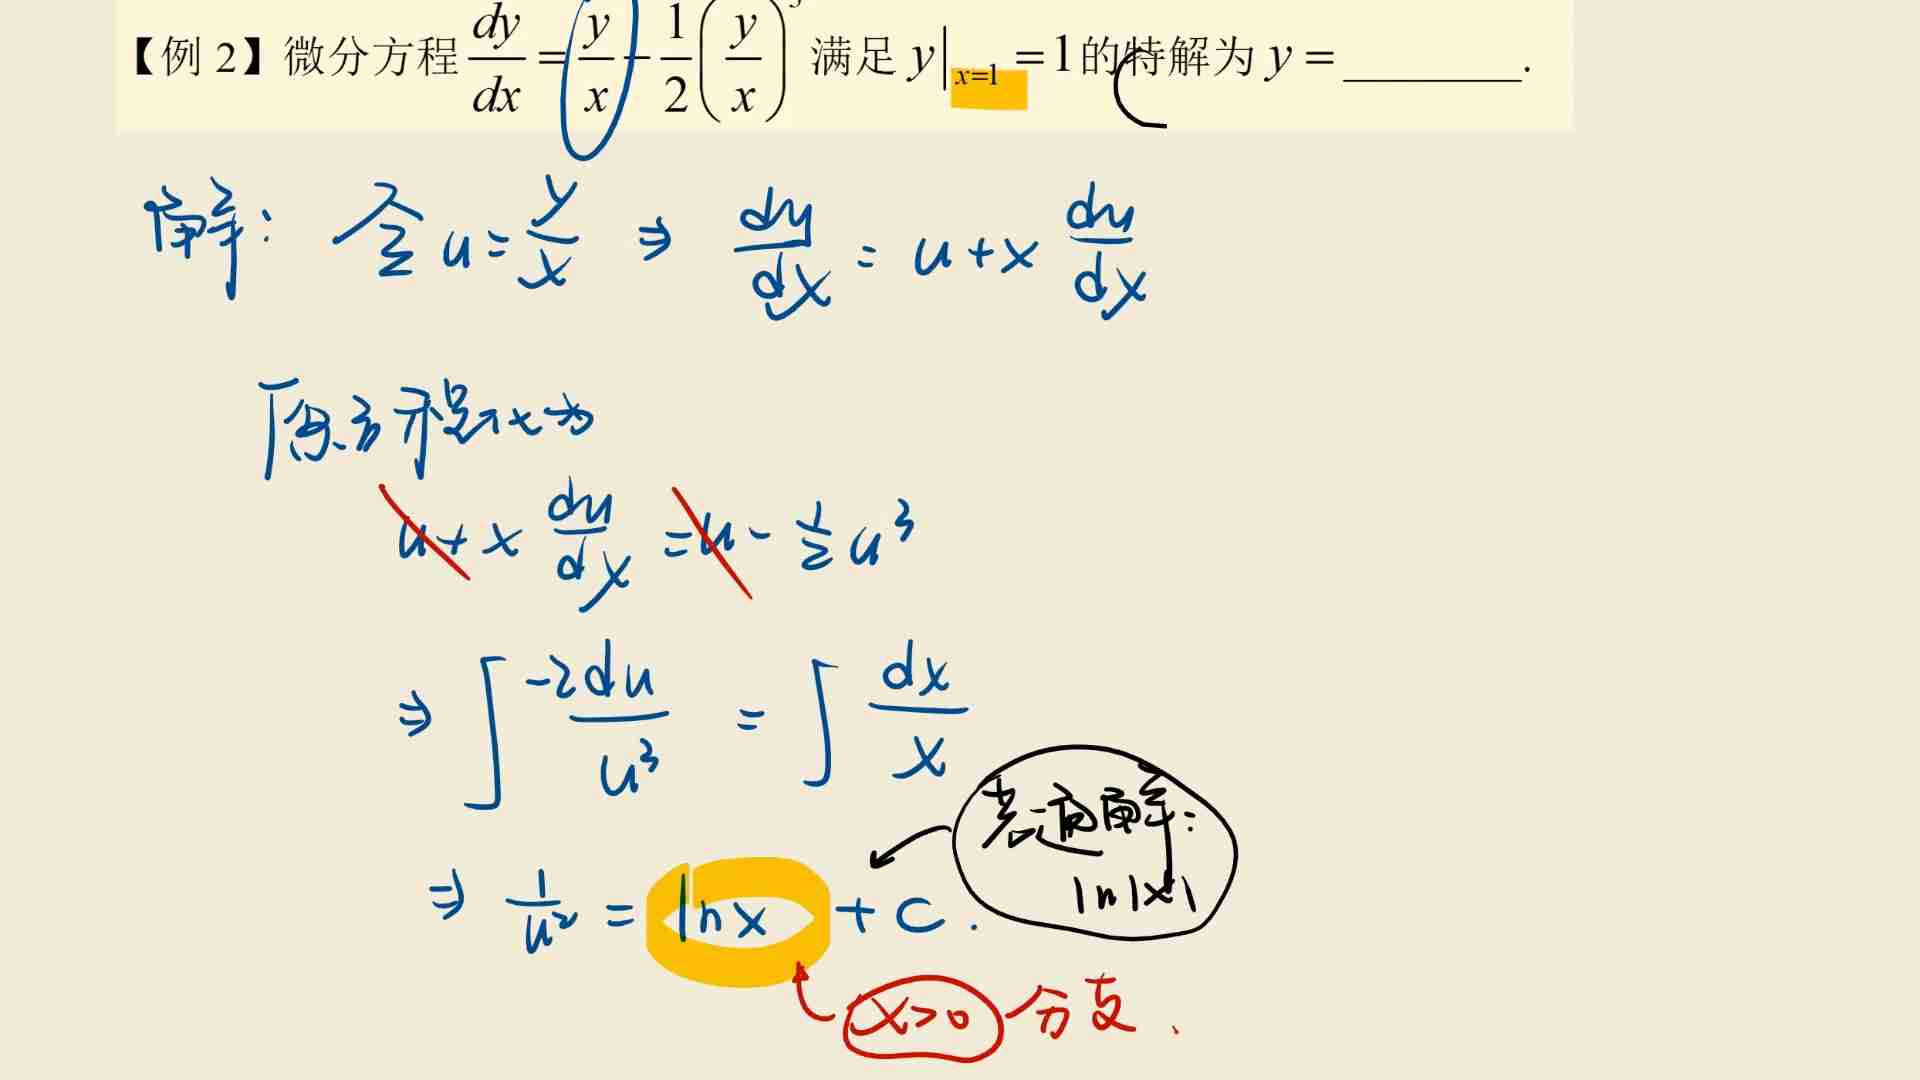 【例 2】微分方程 dy/dx = y/x - 1/2 (y/x)^3 满足 y|_{x=1} = 1 的特解为 y = ________.
解: 令 u = y/x ⇒ dy/dx = u + x du/dx
原方程化为
u + x du/dx = u - 1/2 u^3
⇒ ∫ -2du/u^3 = ∫ dx/x
若通解:
ln|x|
⇒ 1/u^2 = ln x + C.
x>0 分支.